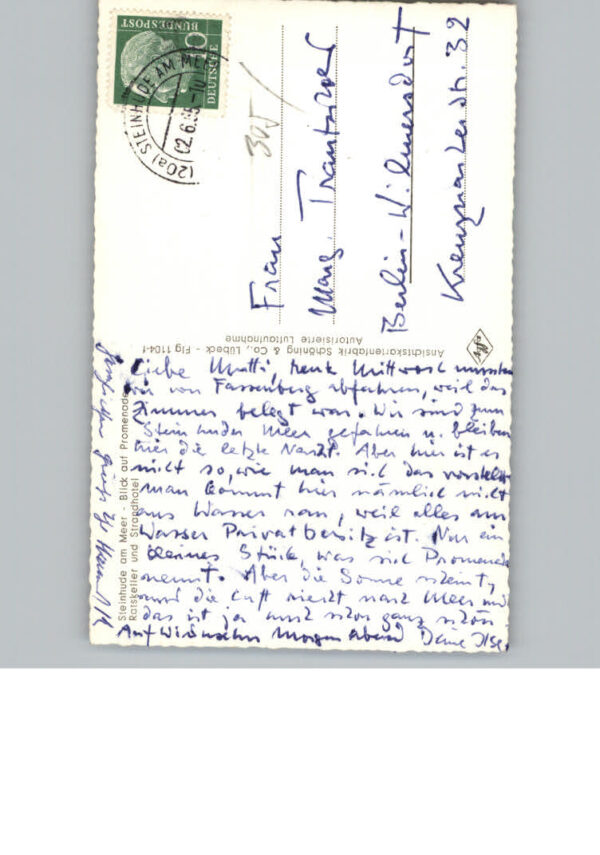 DEUTSCHE
BUNDESPOST
10
(20a) STEINHUDE AM MEER
02.6.55-10
305
Frau
Marg.
Berlin-Wilmersdorf
Kreuznacherstr. 32
Ansichtskartenfabrik Schöning & Co., Lübeck - Flg 1104-f
Autorisierte Luftaufnahme
Agfa
Steinhude am Meer - Blick auf Promenade
Ratskeller und Strandhotel
Liebe Mutti, heute Mittwoch mussten
wir von Fassenberg abfahren, weil das
Zimmer belegt war. Wir sind zum
Steinhuder Meer gefahren u. bleiben
hier die letzte Nacht. Aber hier ist es
nicht so, wie man sich das vorstellt
man kommt hier nämlich nicht
ans Wasser ran, weil alles am
Wasser Privatbesitz ist. Nur ein
kleines Stück, was sich Promenade
nennt. Aber die Sonne scheint,
und die Luft riecht nach Meer und
das ist ja auch schon ganz schön
Auf Wiedersehn Morgen Abend Deine Ilse
Grüße